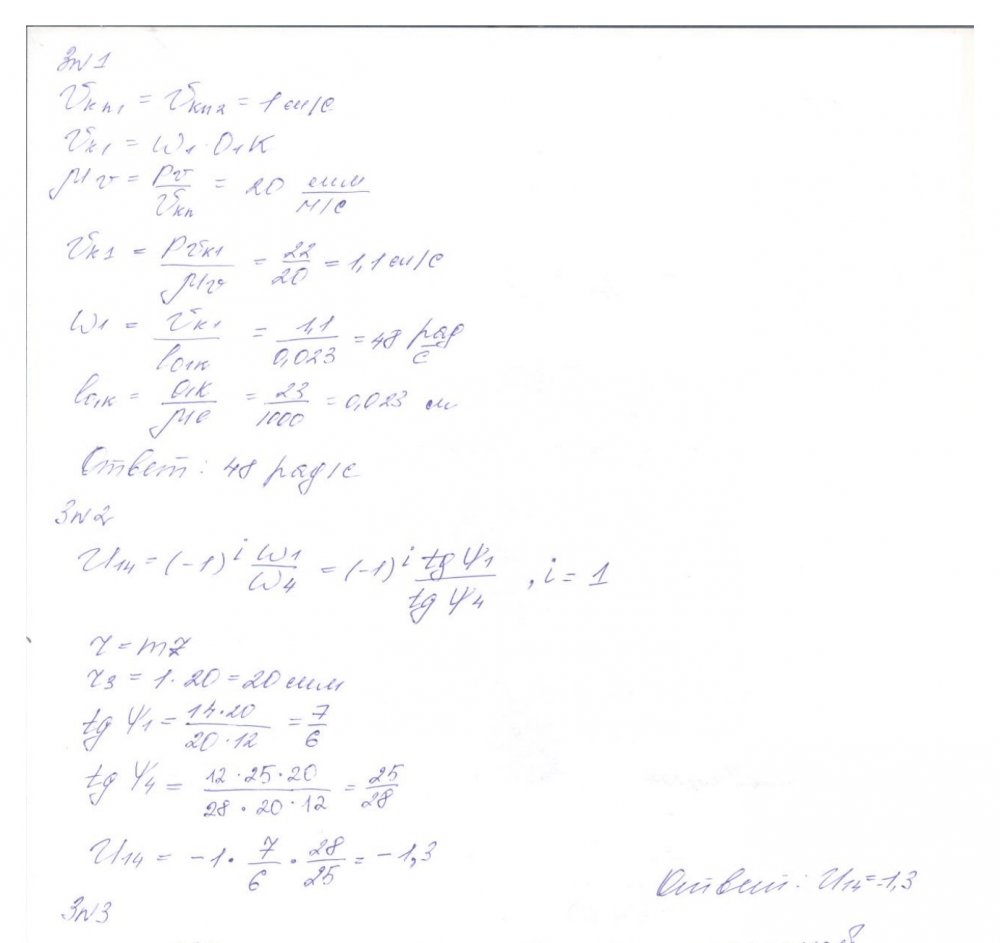 Зп1
V̄кп1 = V̄кп2 = 1 м/с
V̄к1 = ω1 · O1K
μv = pv / V̄кп = 20 мм / м/с
V̄к1 = pvк1 / μv = 22 / 20 = 1,1 м/с
ω1 = V̄к1 / lo1к = 1,1 / 0,023 = 48 рад / с
lo1к = O1K / μe = 23 / 1000 = 0,023 м
Ответ: 48 рад/с
Зп2
U14 = (-1)^i ω1 / ω4 = (-1)^i tg ψ1 / tg ψ4 , i = 1
r = mz
r3 = 1 · 20 = 20 мм
tg ψ1 = 14·20 / 20·12 = 7 / 6
tg ψ4 = 12·25·20 / 28·20·12 = 25 / 28
U14 = -1 · 7 / 6 · 28 / 25 = -1,3
Ответ: U14 = -1,3
Зп3